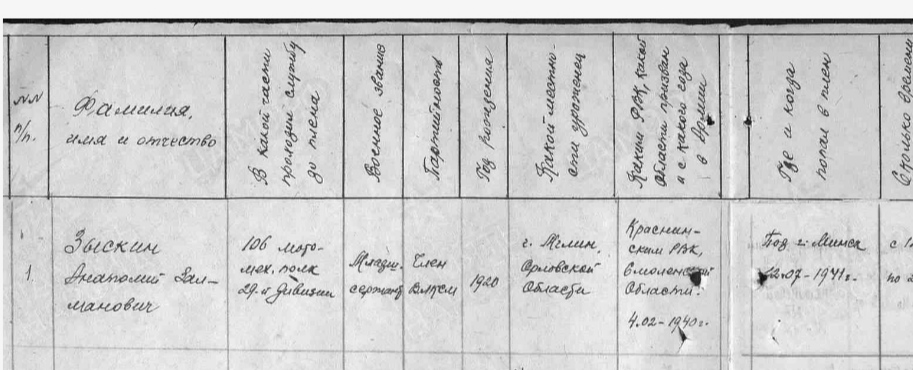 NN
п/п.
Фамилия,
имя и отчество
В какой части
проходил службу
до плена
Военное звание
Партийность
Год рождения
Какой местно-
сти уроженец
Каким РВК, какой
области призван
и с какого года
в Армии
Где и когда
попал в плен
Сколько времени
1.
Зыскин
Анатолий Зал-
манович
106 мото-
мех. полк
29-й дивизии
Младш.
сержант
Член
ВЛКСМ
1920
г. Мглин,
Орловской
Области
Краснин-
ским РВК,
Смоленской
Области.
4.02-1940г.
Под г. Минск
2.07-1941г.
с
по